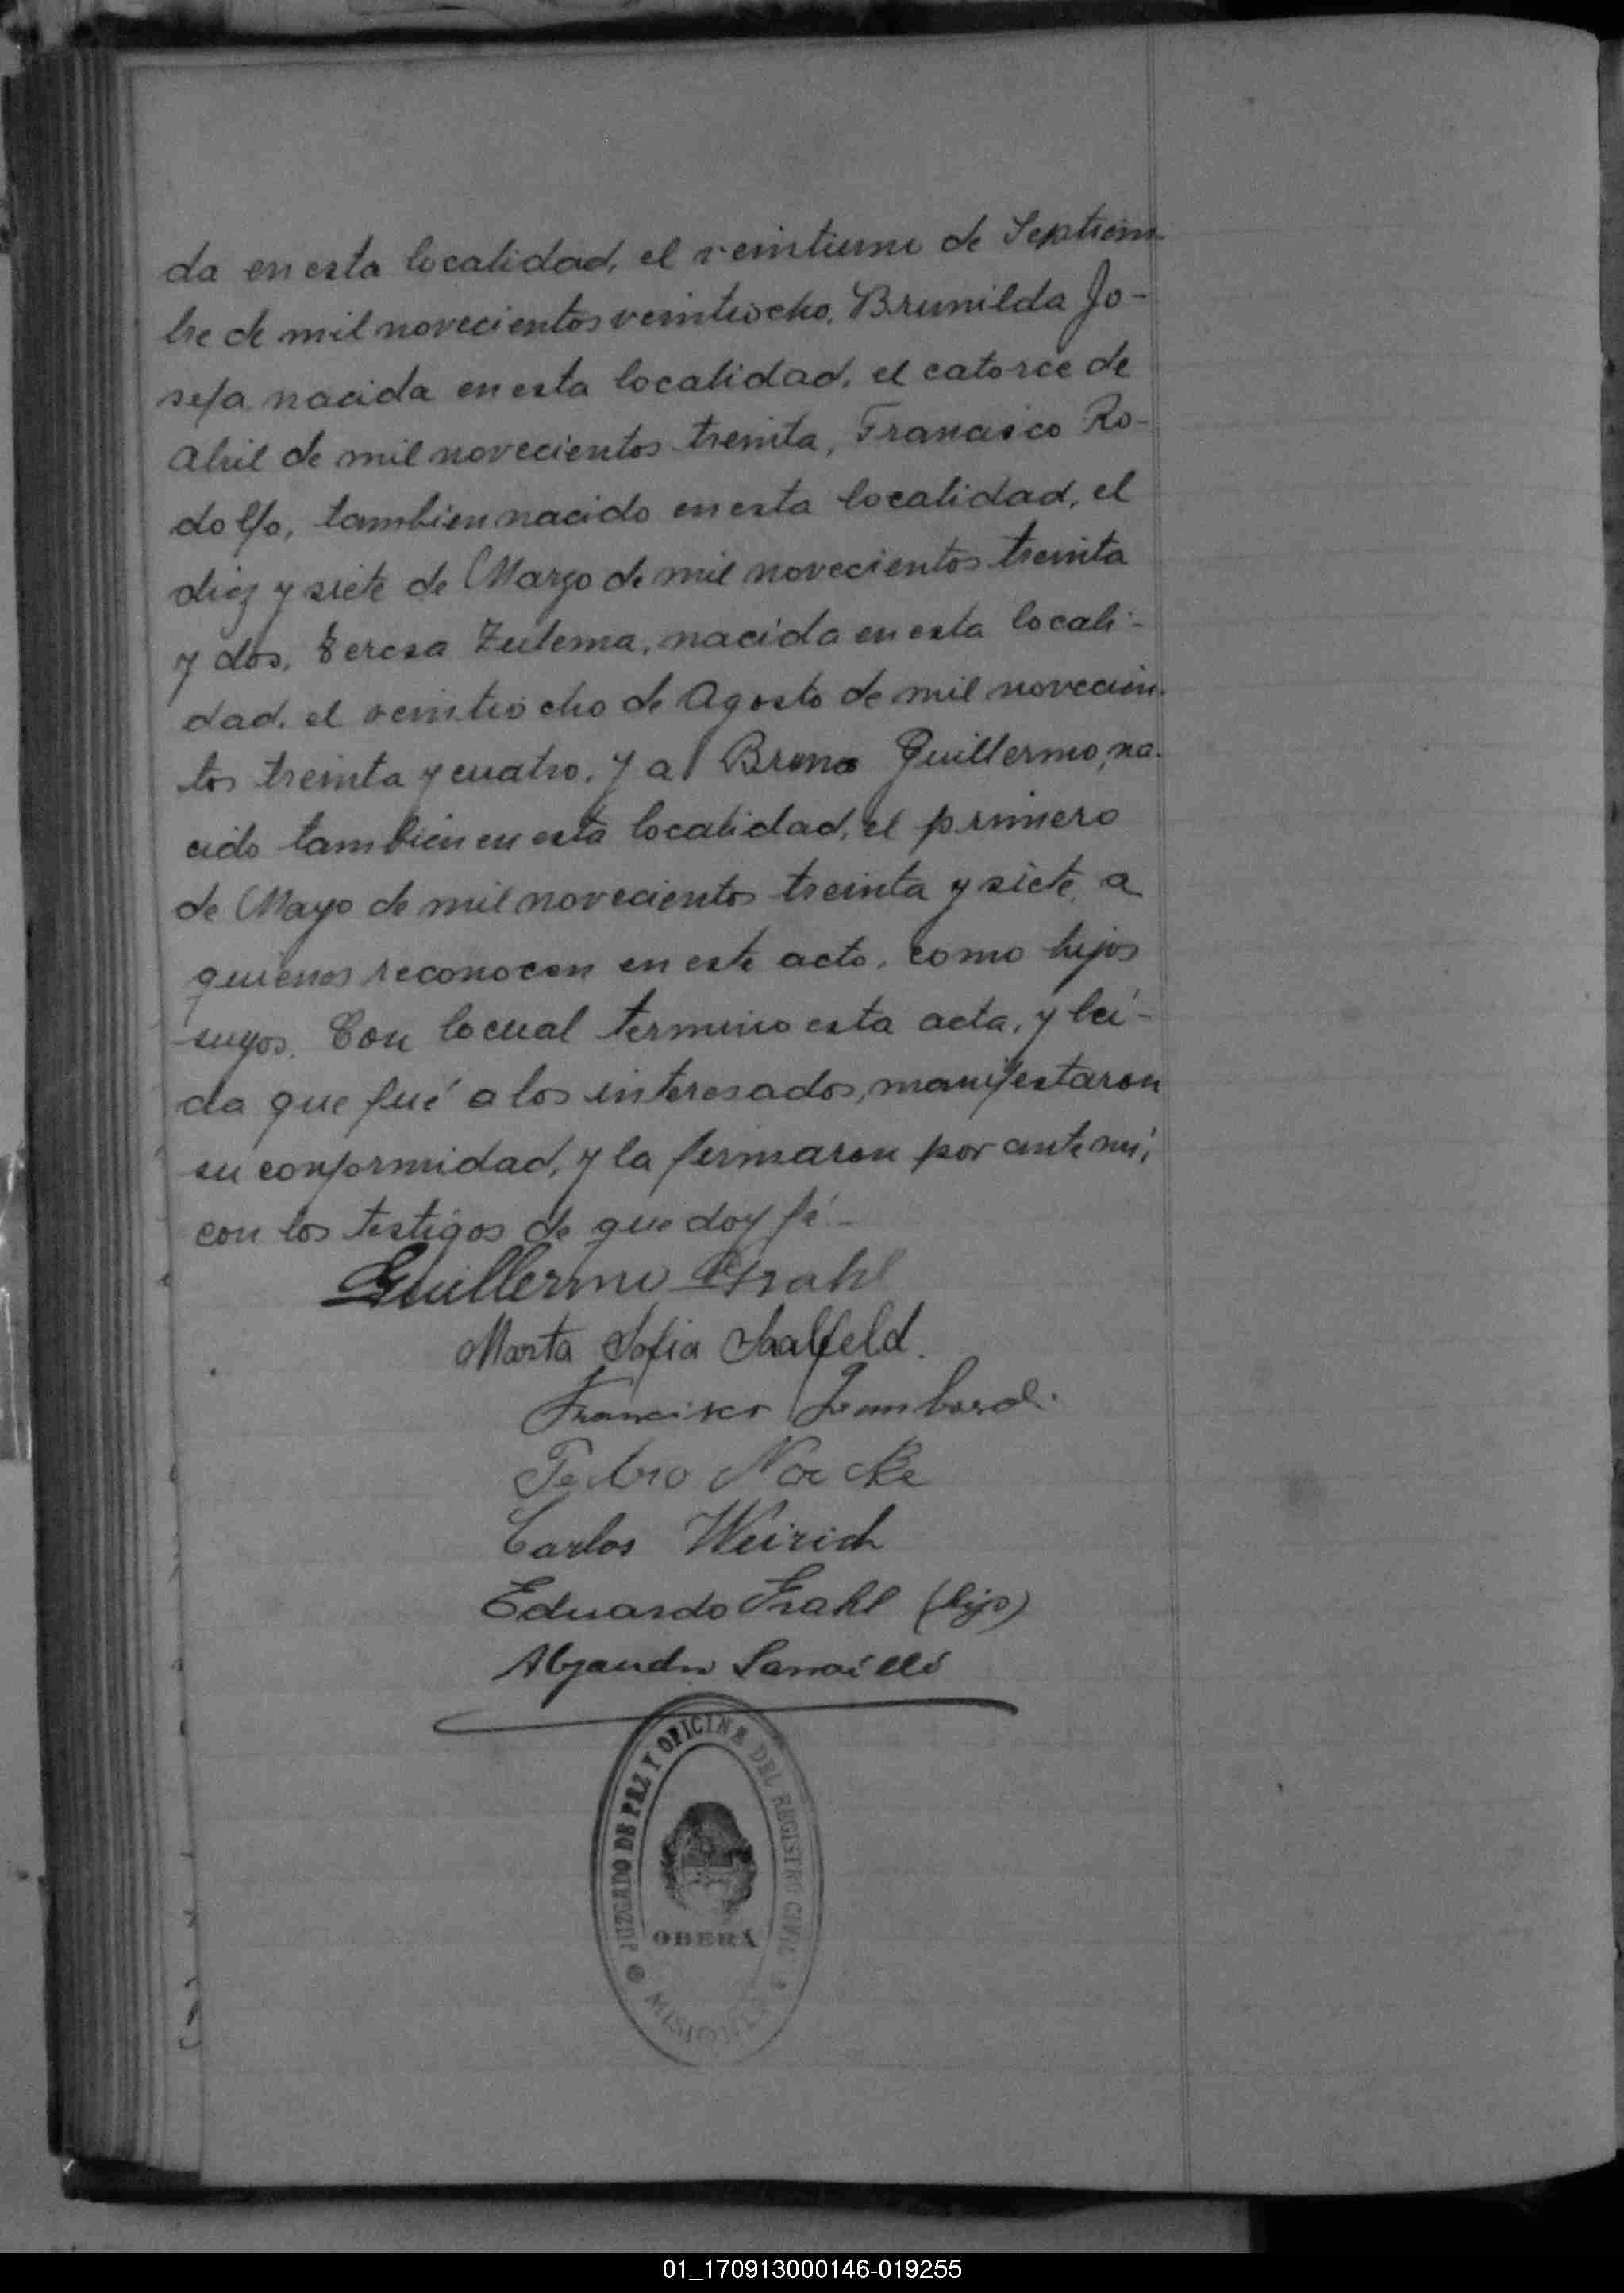 da en esta localidad, el veintiuno de Septiem-
bre de mil novecientos veintiocho, Brunilda Jo-
sefa, nacida en esta localidad, el catorce de
Abril de mil novecientos treinta, Francisco Ro-
dolfo, tambien nacido en esta localidad, el
diez y siete de Marzo de mil novecientos treinta
y dos, Teresa Zulema, nacida en esta locali-
dad, el veintiocho de Agosto de mil novecien-
tos treinta y cuatro, y a Bruno Guillermo, na-
cido tambien en esta localidad, el primero
de Mayo de mil novecientos treinta y siete, a
quienes reconocen en este acto, como hijos
suyos. Con lo cual termino esta acta, y leí-
da que fué a los interesados, manifestaron
su conformidad, y la firmaron por ante mí,
con los testigos de que doy fé.-
Guillermo Grahl
Marta Sofia Saalfeld.
Francisco
Pedro
Carlos Weirich
Eduardo Grahl (hijo)
Alejandro
JUZGADO DE PAZ Y OFICINA DEL REGISTRO CIVIL
OBERÁ
MISIONES
01_170913000146-019255